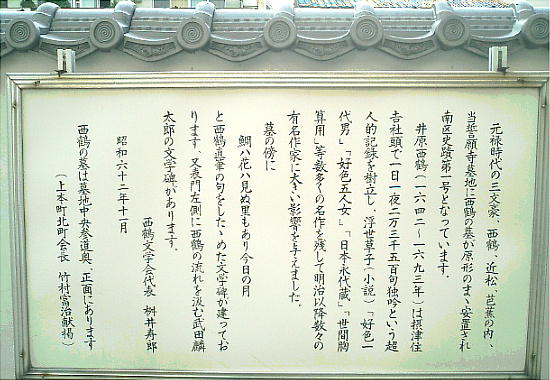 元禄時代の三文豪、西鶴、近松、芭蕉の内、
当誓願寺墓地に西鶴の墓が原形のまゝ安置され
南区史蹟第一号となっています。
井原西鶴(一六四二―一六九三年)は摂津住
吉社頭で一日一夜二万三千五百句独吟という超
人的記録を樹立し、浮世草子(小説)「好色一
代男」「好色五人女」「日本永代蔵」「世間胸
算用」等数多くの名作を残して明治以降数々の
有名作家に大きい影響を与えました。
墓の傍に
鯛ハ花ハ見ぬ里もあり今日の月
と西鶴直筆の句をしたゝめた文学碑が建ってお
ります、又表門左側に西鶴の流れを汲む武田麟
太郎の文学碑があります。
昭和六十二年十一月
西鶴文学会代表 桝井寿郎
西鶴の墓は墓地中央参道奥、正面にあります
(上本町北町会長 竹村富治献掲)